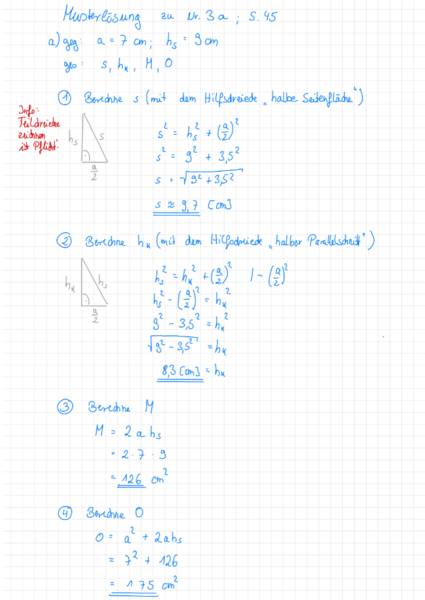 Musterlösung zu Nr. 3a ; S. 45
a) geg: a = 7 cm ; hs = 9 cm
ges: s, hk, M, O
① Berechne s (mit dem Hilfsdreieck „halbe Seitenfläche“)
Info:
Teildreiecke
zeichnen
ist Pflicht!
hs
s
a/2
s² = hs² + (a/2)²
s² = 9² + 3,5²
s = √(9² + 3,5²)
s ≈ 9,7 [cm]
② Berechne hk (mit dem Hilfsdreieck „halber Parallelschnitt“)
hk
hs
a/2
hs² = hk² + (a/2)² | - (a/2)²
hs² - (a/2)² = hk²
9² - 3,5² = hk²
√(9² - 3,5²) = hk
8,3 [cm] = hk
③ Berechne M
M = 2 a hs
= 2 · 7 · 9
= 126 cm²
④ Berechne O
O = a² + 2ahs
= 7² + 126
= 175 cm²